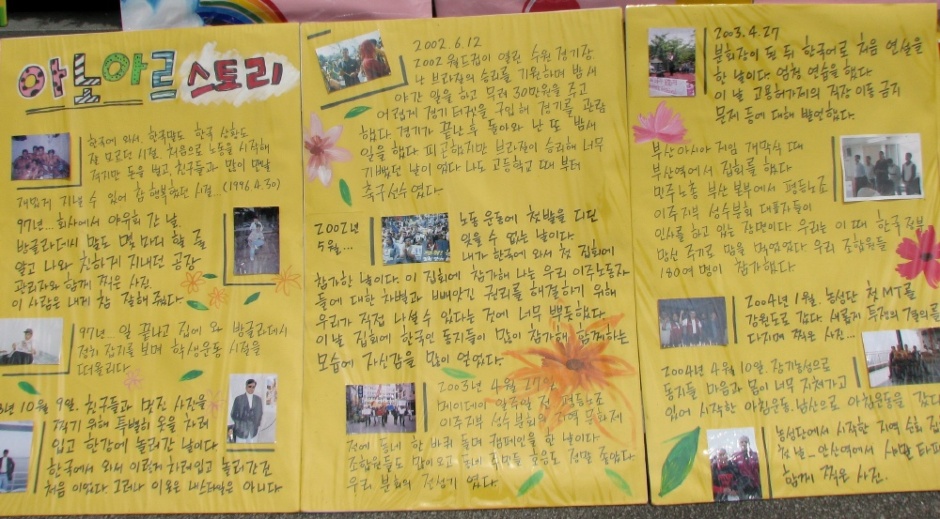 아노아르 스토리
한국에 와서, 한국말도 한국 상황도
잘 모르던 시절. 처음으로 노동을 시작해
적지만 돈을 벌고, 친구들과 많이 만날
재밌게 지낼 수 있어 참 행복했던 시절... (1996.4.30)
97년... 회사에서 야유회 간 날.
방글라데시 말도 몇 마디 할 줄
알고 나와 친하게 지내던 공장
관리자와 함께 찍은 사진
이 사람은 내게 참 잘해 주었다.
97년 일 끝나고 집에 와 방글라데시
정치 잡지를 보며 학생운동 시절을
떠올리다
10월 9일. 친구들과 멋진 사진을
찍기 위해 특별히 옷을 차려
입고 한강에 놀러간 날이다.
한국에서 와서 이렇게 차려입고 놀러간건
처음이었다. 그러나 이 옷은 내 스타일은 아니다.
2002.6.12
2002 월드컵이 열린 수원 경기장
나 브라질의 승리를 기원하며 밤새
야간 일을 하고 무려 30만원을 주고
어렵게 경기 티켓을 구입해 경기를 관람
했다. 경기가 끝난 후 돌아와 난 또 밤새
일을 했다. 피곤했지만 브라질이 승리해 너무
기뻤던 날이었다. 나도 고등학교 때부터
축구선수였다.
2002년
5월...
노동운동에 첫발을 디딘
잊을 수 없는 날이다.
내가 한국에 와서 첫 집회에
참가한 날이다. 이 집회에 참가해 나는 우리 이주노동자
들에 대한 차별과 빼앗긴 권리를 해결하기 위해
우리가 직접 나설 수 있다는 것에 너무 뿌듯했다.
이날 집회에 한국인 동지들이 많이 참가해 함께하는
모습에 자신감을 많이 얻었다.
2003년 4월 27일
메이데이 일주일 전 평등노조
이주지부 성수분회와 지역 문화제
전에 동네 한 바퀴 돌며 캠페인을 한 날이다.
조합원들도 많이 오고 동네 주민들 호응도 정말 좋았다
우리 분회의 전성기였다.
2003.4.27
분회장이 된 뒤 한국어로 처음 연설을
한 날이다. 엄청 연습을 했다.
이 날 고용허가제의 직장 이동 금지
문제 등에 대해 발언했다.
부산 아시아 게임 개막식 때
부산역에서 집회를 했다
민주노총 부산 본부에서 평등노조
이주지부 성수분회 대표자들이
인사를 하고 있는 장면이다. 우리는 이때 한국 정부
망신 주기로 맘을 먹었었다. 우리 조합원들
180여 명이 참가했다.
2004년 1월. 농성단 첫 MT를
강원도로 갔다. 새롭게 투쟁의 결의를
다지며 찍은 사진...
2004년 4월 10일. 장기농성으로
동지들 마음과 몸이 너무 지쳐가고
있어 시작한 아침운동. 남산으로 아침운동을 갔다
농성단에서 시작한 지역 순회 집
첫 날-안산역에서 샤말 타파
함께 찍은 사진.